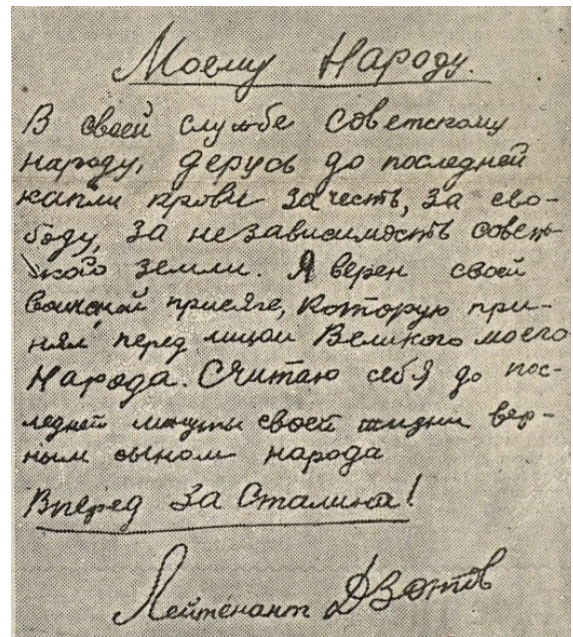 Моему Народу.
В своей службе советскому
народу, дерусь до последней
капли крови за честь, за сво-
боду, за независимость совет-
ского земли. Я верен своей
воинской присяге, которую при-
нял перед лицом Великого моего
Народа. Считаю себя до пос-
ледней минуты своей жизни вер-
ным сыном народа
Вперед за Сталина!
Лейтенант